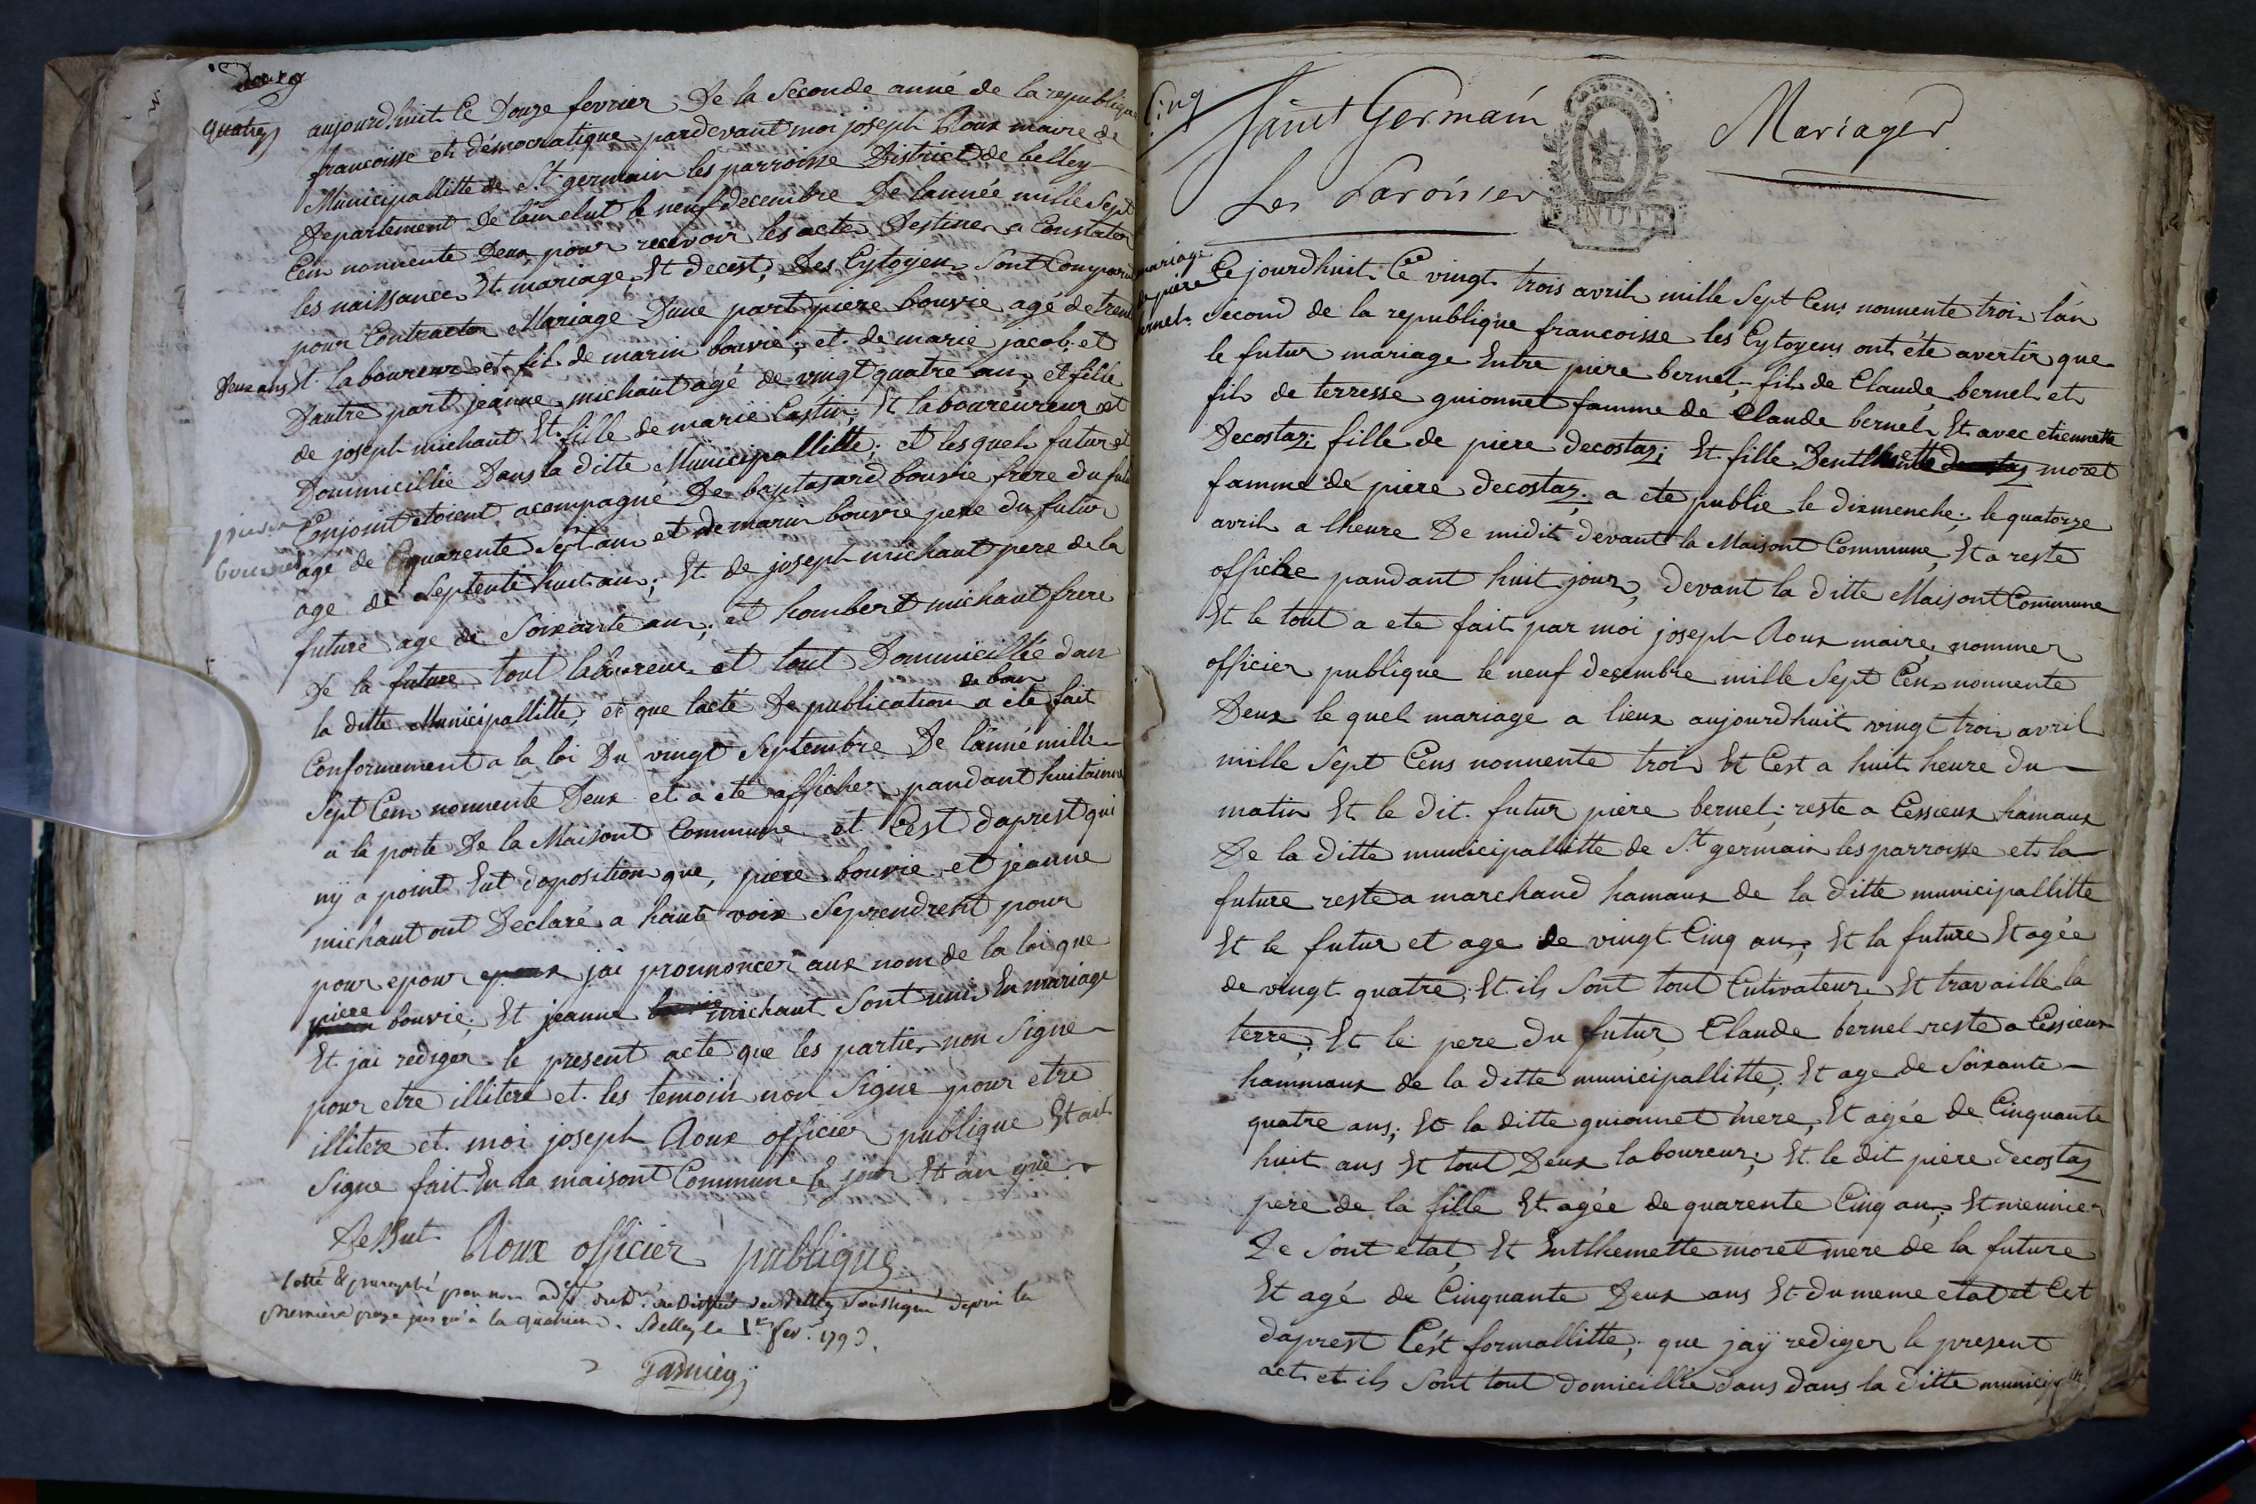 quatrez
aujourdhuit le Douze fevrier De la Seconde anné de la republique
francoisse et démocratique pardevant moi joseph Roux maire de
Municipallitte de St germain les parroisse District de belley
Departement de lain elut le neuf decembre De lannée mille Sept
Cens nonnente Deux pour recevoir les acte Destiner a Constater
les naissance Et mariage Et decest, Des Cytoyen Sont Comparu
pour Contracter Mariage Dune part piere bouvie agé de trente
Deux ans Et laboureur et fil de marin bouvie; et de marie jacob; et
Dautre part jeanne michaut agé de vingt quatre an, et fille
de joseph michaut Et fille de marie Castin; Et laboureureur et
Dommicillie Dans la ditte Municipallitte; et les quels futur et
Conjoint etoient acompagné De baptasard bouvie frere du futur
agé de quarente Sept an et de marin bouvie pere du futur
age de Septente huit an; Et de joseph michaut pere de la
future age de Soixante an; et hombert michaut frere
De la future tout laboureur et tout Dommicillie dan
la ditte Municipallitte; et que lacte De publication de ban a ete fait
Conformement a la loi Du vingt Septembre De lanné mille
Sept Cens nonnente Deux et a eté afficher pandant huitaine
a la porte De la Maisont Commune et Cest daprest qui
ny a point Eut doposition que, piere bouvie et jeanne
michaut ont Declaré a haute voix Seprendrent pour
pour epour epoux jai pronnoncer aux nom de la loi que
piere bouvie; Et jeanne michaut Sont uni En mariage
Et jai rediger le present acte que les partie non Signe
pour etre illiteré et les temoin non Signe pour etre
illitere et moi joseph Roux officier publique Et ait
Signe fait En la maisont Commune le jour Et an que
deSsut Roux officier publique
premiere page jusqu'à la quatrieme. Belley le 1er fev. 1793.
Cinq
Saint Germain
Les Paroisses
Mariages
MINUTE
mariage
de piere
bernel
Ce jourdhuit Ce vingt trois avril mille Sept Cens nonnente troi lan
second de la republique francoisse les Cytoyens ont été avertir que
le futur mariage Entre piere bernel fil de Claude bernel et
fil de terresse guionnet famme de Claude bernel Et avec etiennette
Decostaz; fille de piere decostaz; Et fille moret
famme de piere decostaz; a ete publie le dixmenche; le quatorze
avril a lheure De midit devant la Maisont Commune, Et a reste
officihe pandant huit jour, devant la ditte Maisont Commune
Et le tout a ete fait par moi joseph Roux maire nommer
officier publique le neuf decembre mille Sept Cens nonnente
Deux le quel mariage a lieux aujourdhuit vingt troi avril
mille Sept Cens nonnente troi Et Cest a huit heure du
matin Et le dit futur piere bernel; reste a Cessieux hamaux
De la ditte municipallitte de St germain les parroisse et la
future reste a marchand hamaux de la ditte municipallitte
Et le futur et age de vingt Cinq an; Et la future Et agée
de vingt quatre; Et ils Sont tout Cutivateur Et travaille la
terre; Et le pere du futur Claude bernel reste a Cessieux
hammaux de la ditte municipallitte; Et age de Soixante
quatre ans; Et la ditte guionnet mere, Et agée de Cinquante
huit ans Et tout Deux laboureur; Et le dit piere decostaz
pere de la fille Et agée de quarente Cinq an; Et meunier
De Sont etat, Et moret mere de la future
Et agé de Cinquante Deux ans Et du meme etat et Cet
daprest Cest formallitte; que jaÿ rediger le present
act et ils Sont tout domicillie dans dans la ditte